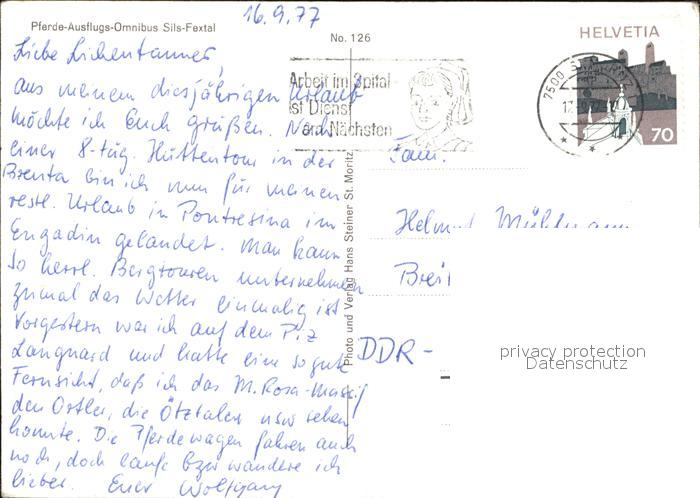 Pferde-Ausflugs-Omnibus Sils-Fextal
16.9.77
No. 126
HELVETIA
70
7500
Arbeit im Spital
ist Dienst
am Nächsten
Liebe Lichentanner,
aus meinem diesjährigen Urlaub
möchte ich Euch grüßen. Nach
einer 8-täg. Hüttentour in der
Brenta bin ich nun für meinen
restl. Urlaub in Pontresina im
Engadin gelandet. Man kann
so herrl. Bergtouren unternehmen
zumal das Wetter einmalig ist
Vorgestern war ich auf dem Piz
Languard und hatte eine so gute
Fernsicht, daß ich das M. Rosa-Massif
den Ortler, die Ötztaler usw sehen
konnte. Die Pferdewagen fahren auch
noch, doch laufe bzw wandere ich
lieber. Euer Wolfgang
Photo und Verlag Hans Steiner St. Moritz
Fam.
Helmut
DDR-
privacy protection
Datenschutz